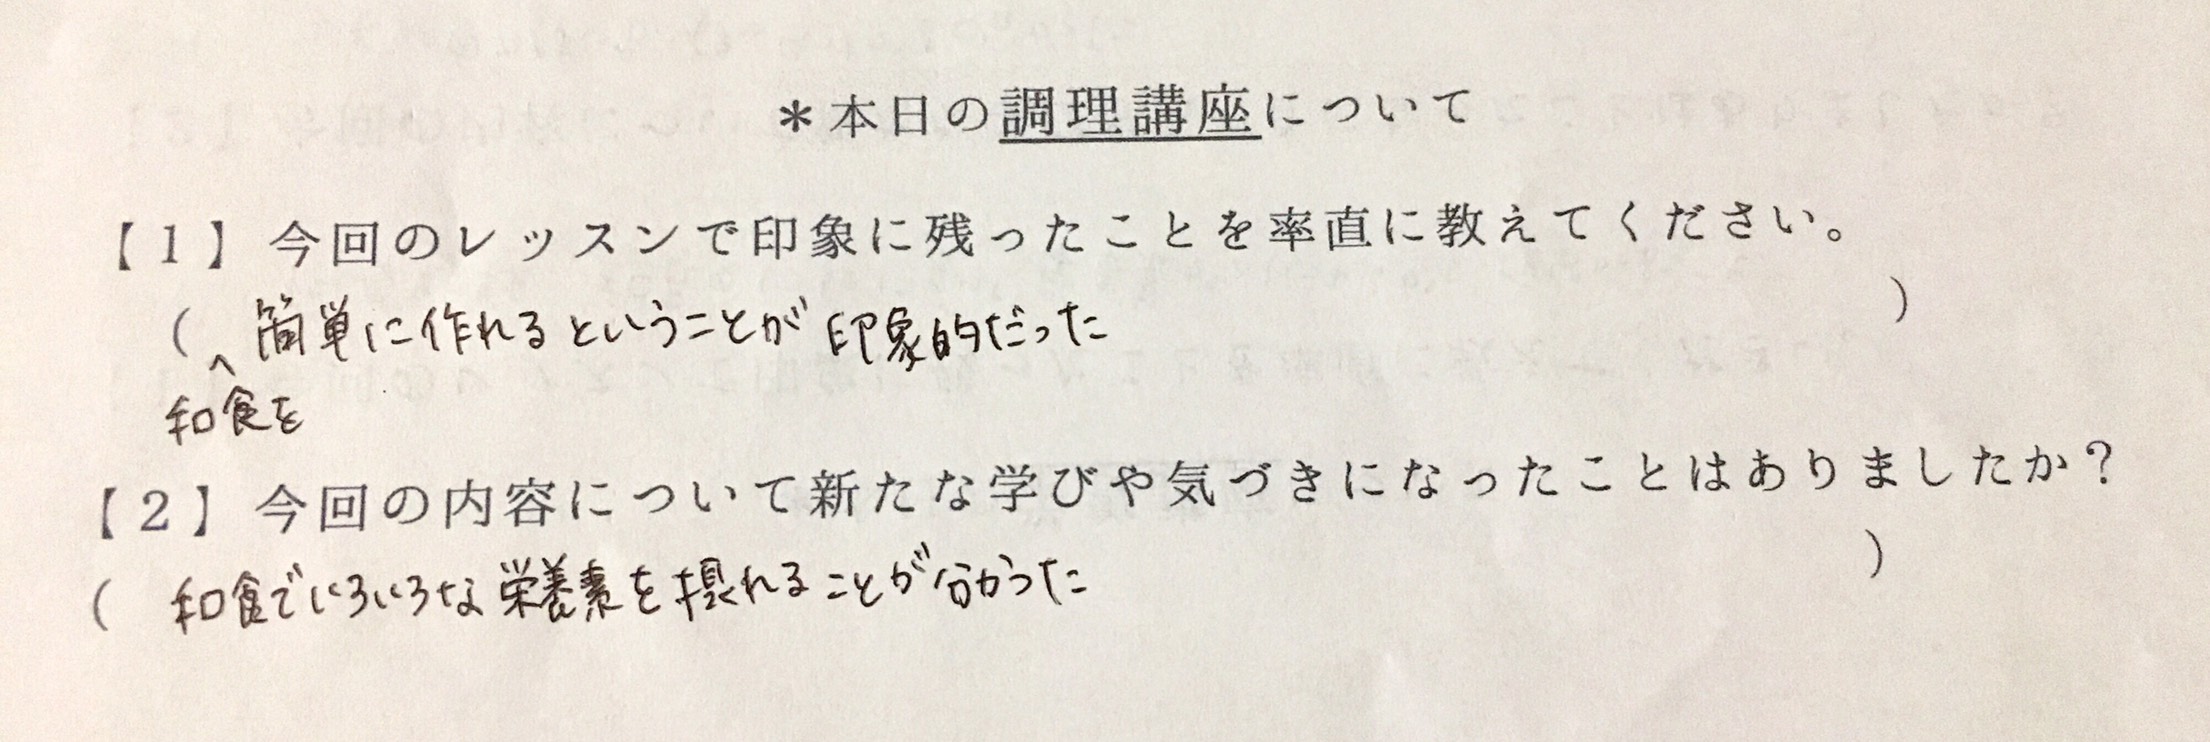 ＊本日の調理講座について
【１】今回のレッスンで印象に残ったことを率直に教えてください。
（ 簡単に作れるということが印象的だった ）
^
和食を
【２】今回の内容について新たな学びや気づきになったことはありましたか？
（ 和食でいろいろな栄養素を摂れることが分かった ）